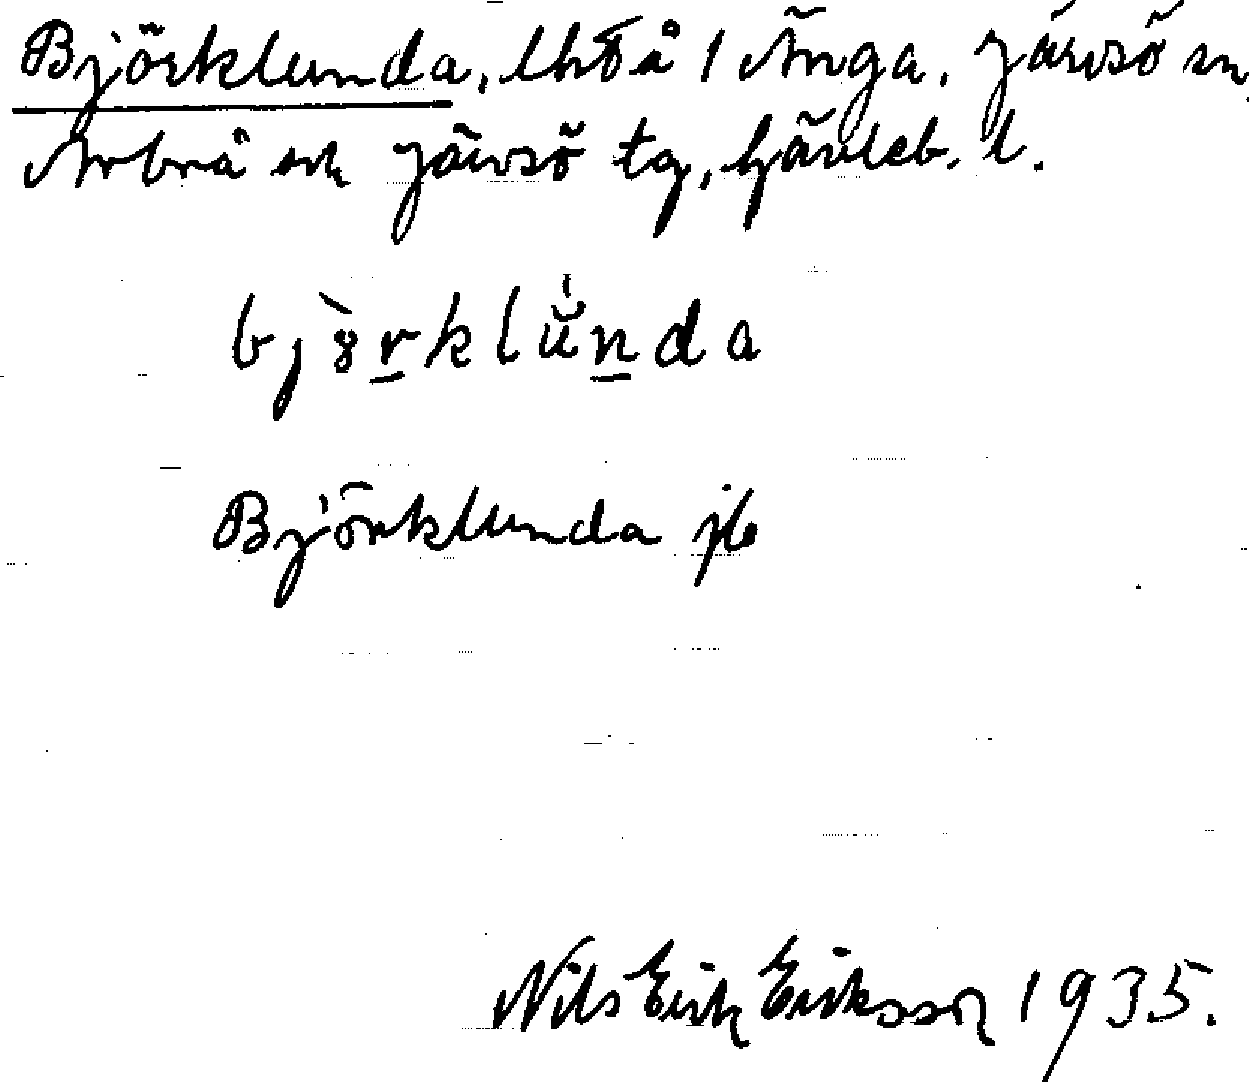 Björklunda, lht å 1 Änga. Järvsö sn,
Arbrå och Järvsö tg, Gävleb. l.
bjòrklúnda
Björklunda jb
Nils Erik Eriksson 1935.